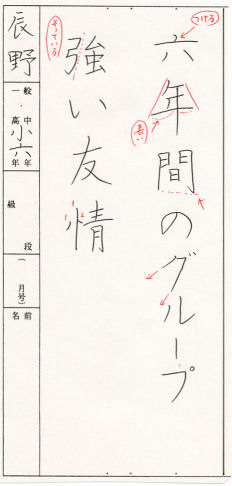 六年間のグループ
つける
長い
強い友情
そっている
1 2 3
辰野
一般・高中小六年年
級 段
( 月号)
名前